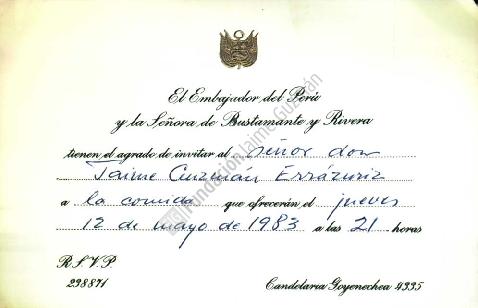 El Embajador del Perú
y la Señora de Bustamante y Rivera
tienen el agrado de invitar al señor don
Jaime Guzmán Errázuriz
a la comida que ofrecerán el jueves
12 de mayo de 1983 a las 21 horas
R.S.V.P.
298871 Candelaria Goyenechea 4335
Fundación Jaime Guzmán